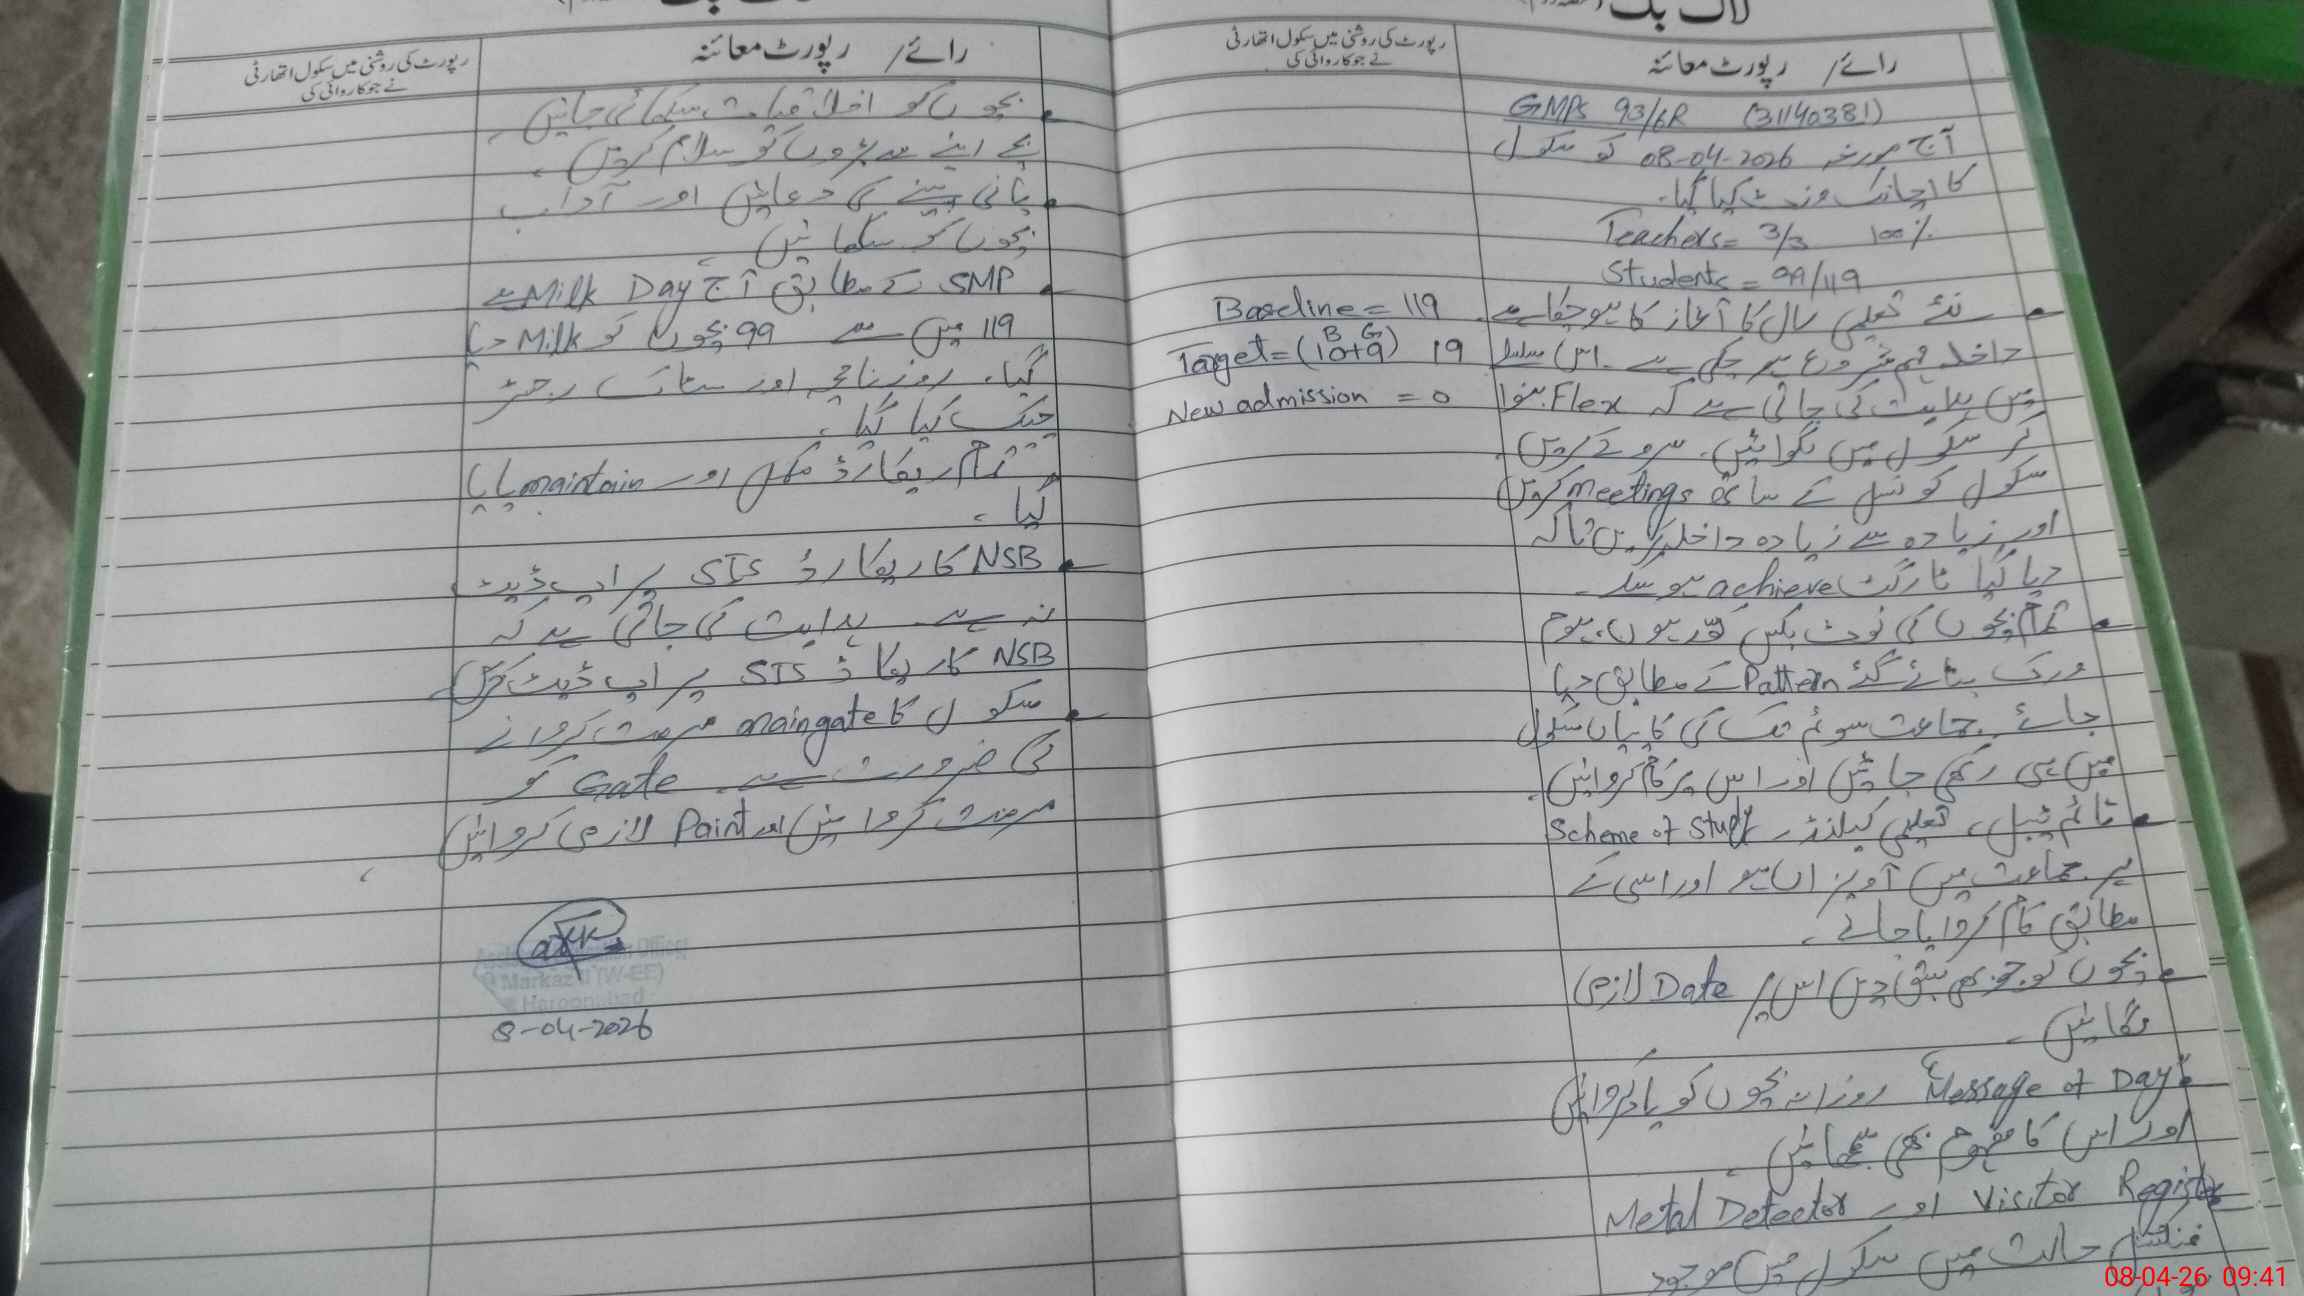 لاگ بک
رائے/ رپورٹ معائنہ
رپورٹ کی روشنی میں سکول اتھارٹی
نے جو کاروائی کی
GMPS 93/6R (31140381)
آج مورخہ 08-04-2026 کو سکول
کا اچانک وزٹ کیا گیا۔
Teachers = 3/3 100%
Students = 99/119
نئے تعلیمی سال کا آغاز کا ہو چکا ہے۔
Baseline = 119
داخلہ مہم شروع ہو چکی ہے۔ اس سلسلہ
B G
Target = (10+9) 19
میں ہدایت کی جاتی ہے کہ Flex بنوا
New admission = 0
کر سکول میں لگوائیں۔ سروے کریں۔
سکول کونسل کے ساتھ meetings کریں
اور زیادہ سے زیادہ داخلہ کریں تاکہ
دیا گیا ٹارگٹ achieve ہو سکے۔
تمام بچوں کی نوٹ بکس کور ہوں، ہوم
ورک بتائے گئے Pattern کے مطابق دیا
جائے۔ جماعت سوئم تک کی کاپیاں سکول
میں ہی رکھی جائیں اور اس پر کام کروائیں۔
ٹائم ٹیبل، تعلیمی کیلنڈر، Scheme of Study
ہر جماعت میں آویزاں ہو اور اسی کے
مطابق کام کروایا جائے۔
بچوں کو جو بھی سبق دیں اس پر Date لازمی
لگائیں۔
"Message of Day" روزانہ بچوں کو یاد کروائیں
اور اس کا مفہوم بھی سمجھائیں۔
Metal Detector اور Visitor Register
فنکشنل حالت میں سکول میں موجود
رائے/ رپورٹ معائنہ
رپورٹ کی روشنی میں سکول اتھارٹی
نے جو کاروائی کی
بچوں کو اخلاقیات سکھائی جائیں۔
بچے اپنے سے بڑوں کو سلام کریں۔
پانی پینے کی دعائیں اور آداب
بچوں کو سکھائیں۔
SMP کے مطابق آج Milk Day ہے
119 میں سے 99 بچوں کو Milk دیا
گیا۔ روزنامچہ اور سٹاک رجسٹر
چیک کیا گیا۔
تمام ریکارڈ مکمل اور maintain پایا
گیا۔
NSB کا ریکارڈ SIS پر اپ ڈیٹ
نہ ہے۔ ہدایت کی جاتی ہے کہ
NSB کا ریکارڈ SIS پر اپ ڈیٹ کریں۔
سکول کا maingate مرمت کروانے
کی ضرورت ہے۔ Gate کو
مرمت کروائیں اور Paint لازمی کروائیں۔
Markaz (W-EE)
Haroonabad
8-04-2026
08-04-26 09:41